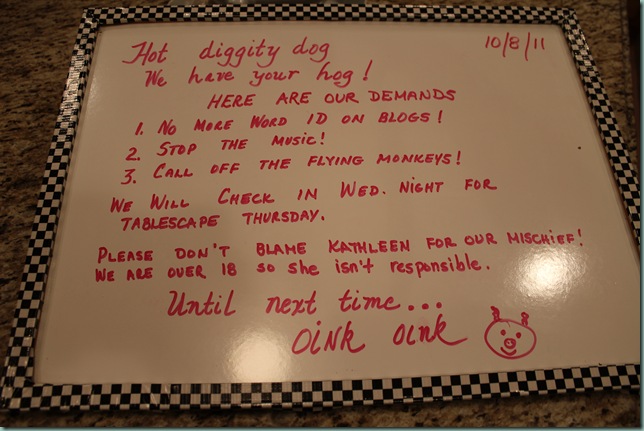 Hot diggity dog 10/8/11
We have your hog!
HERE ARE OUR DEMANDS
1. NO MORE WORD ID ON BLOGS!
2. STOP THE MUSIC!
3. CALL OFF THE FLYING MONKEYS!
WE WILL CHECK IN WED. NIGHT FOR
TABLESCAPE THURSDAY.
PLEASE DON'T BLAME KATHLEEN FOR OUR MISCHIEF!
WE ARE OVER 18 SO SHE isn't responsible.
Until next time...
OINK OINK